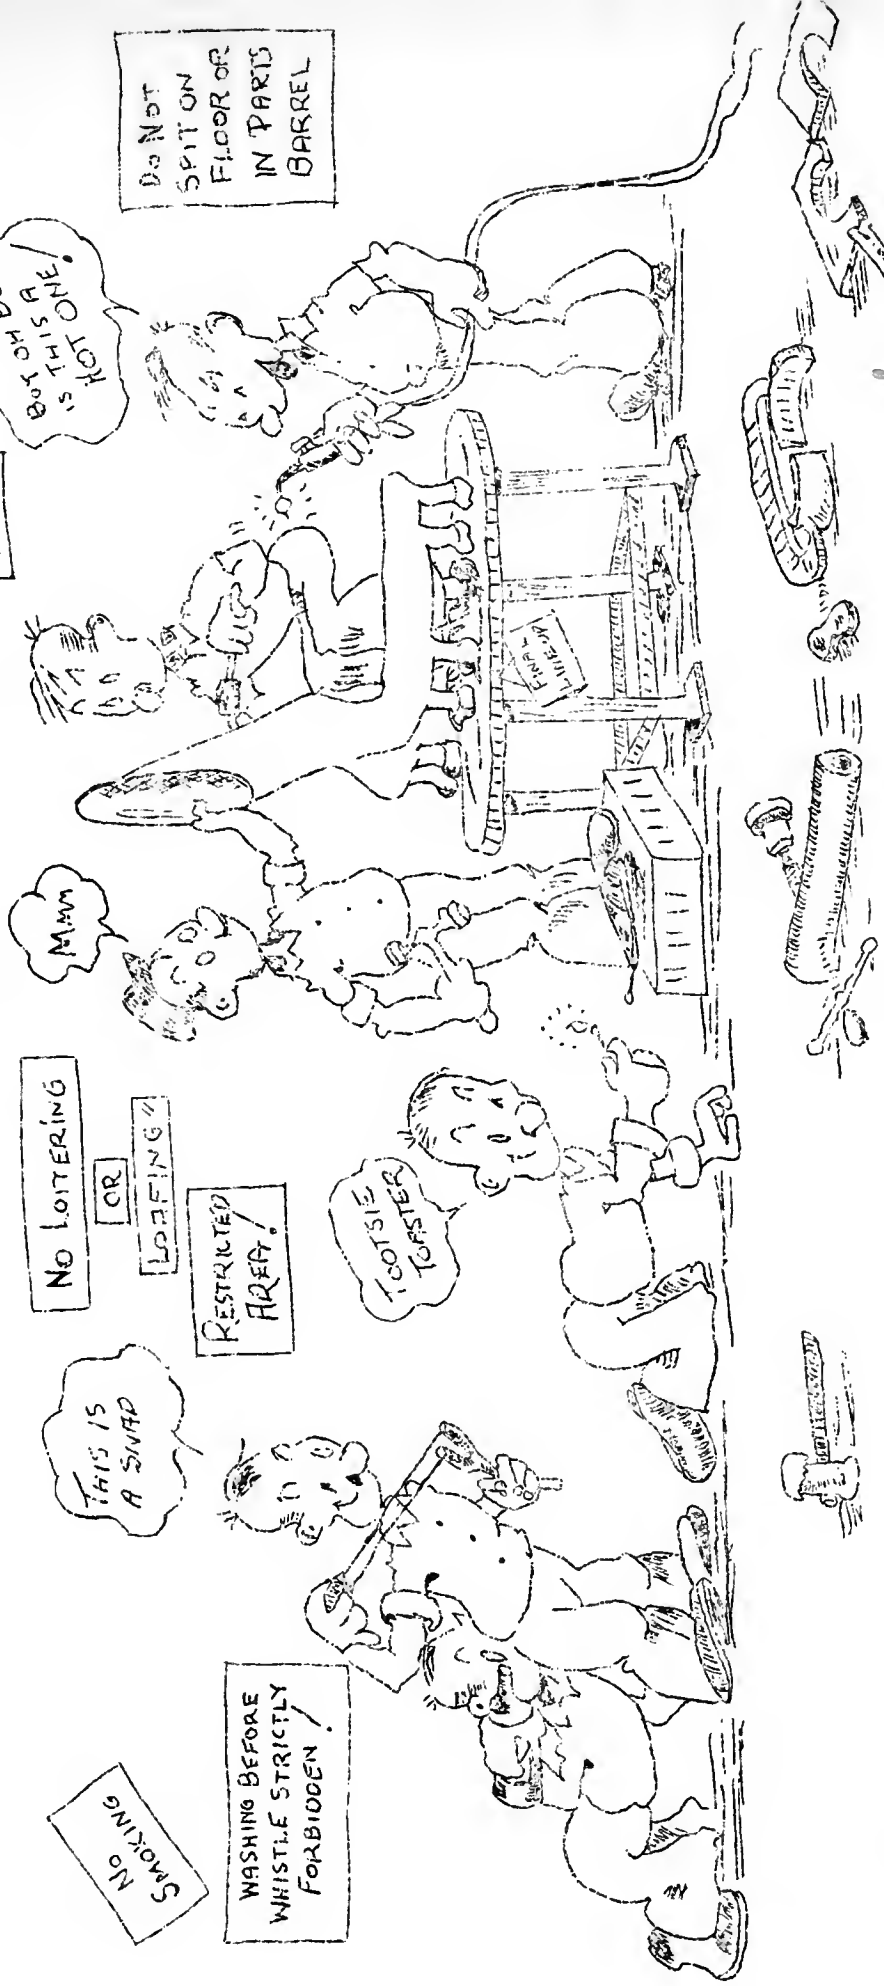 No
SMOKING
WASHING BEFORE
WHISTLE STRICTLY
FORBIDDEN!
THIS IS
A SNAP
NO LOITERING
OR
LOAFING"
RESTRICTED
AREA!
TOOTSIE
TOASTER
MMM
FINAL
LINE-UP
BOY OH
IS THIS A
HOT ONE!
DO NOT
SPIT ON
FLOOR OR
IN PARTS
BARREL